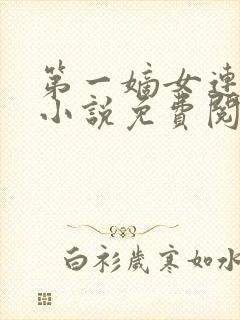 第一嫡女連
小說免費閱
白衫歲寒如水